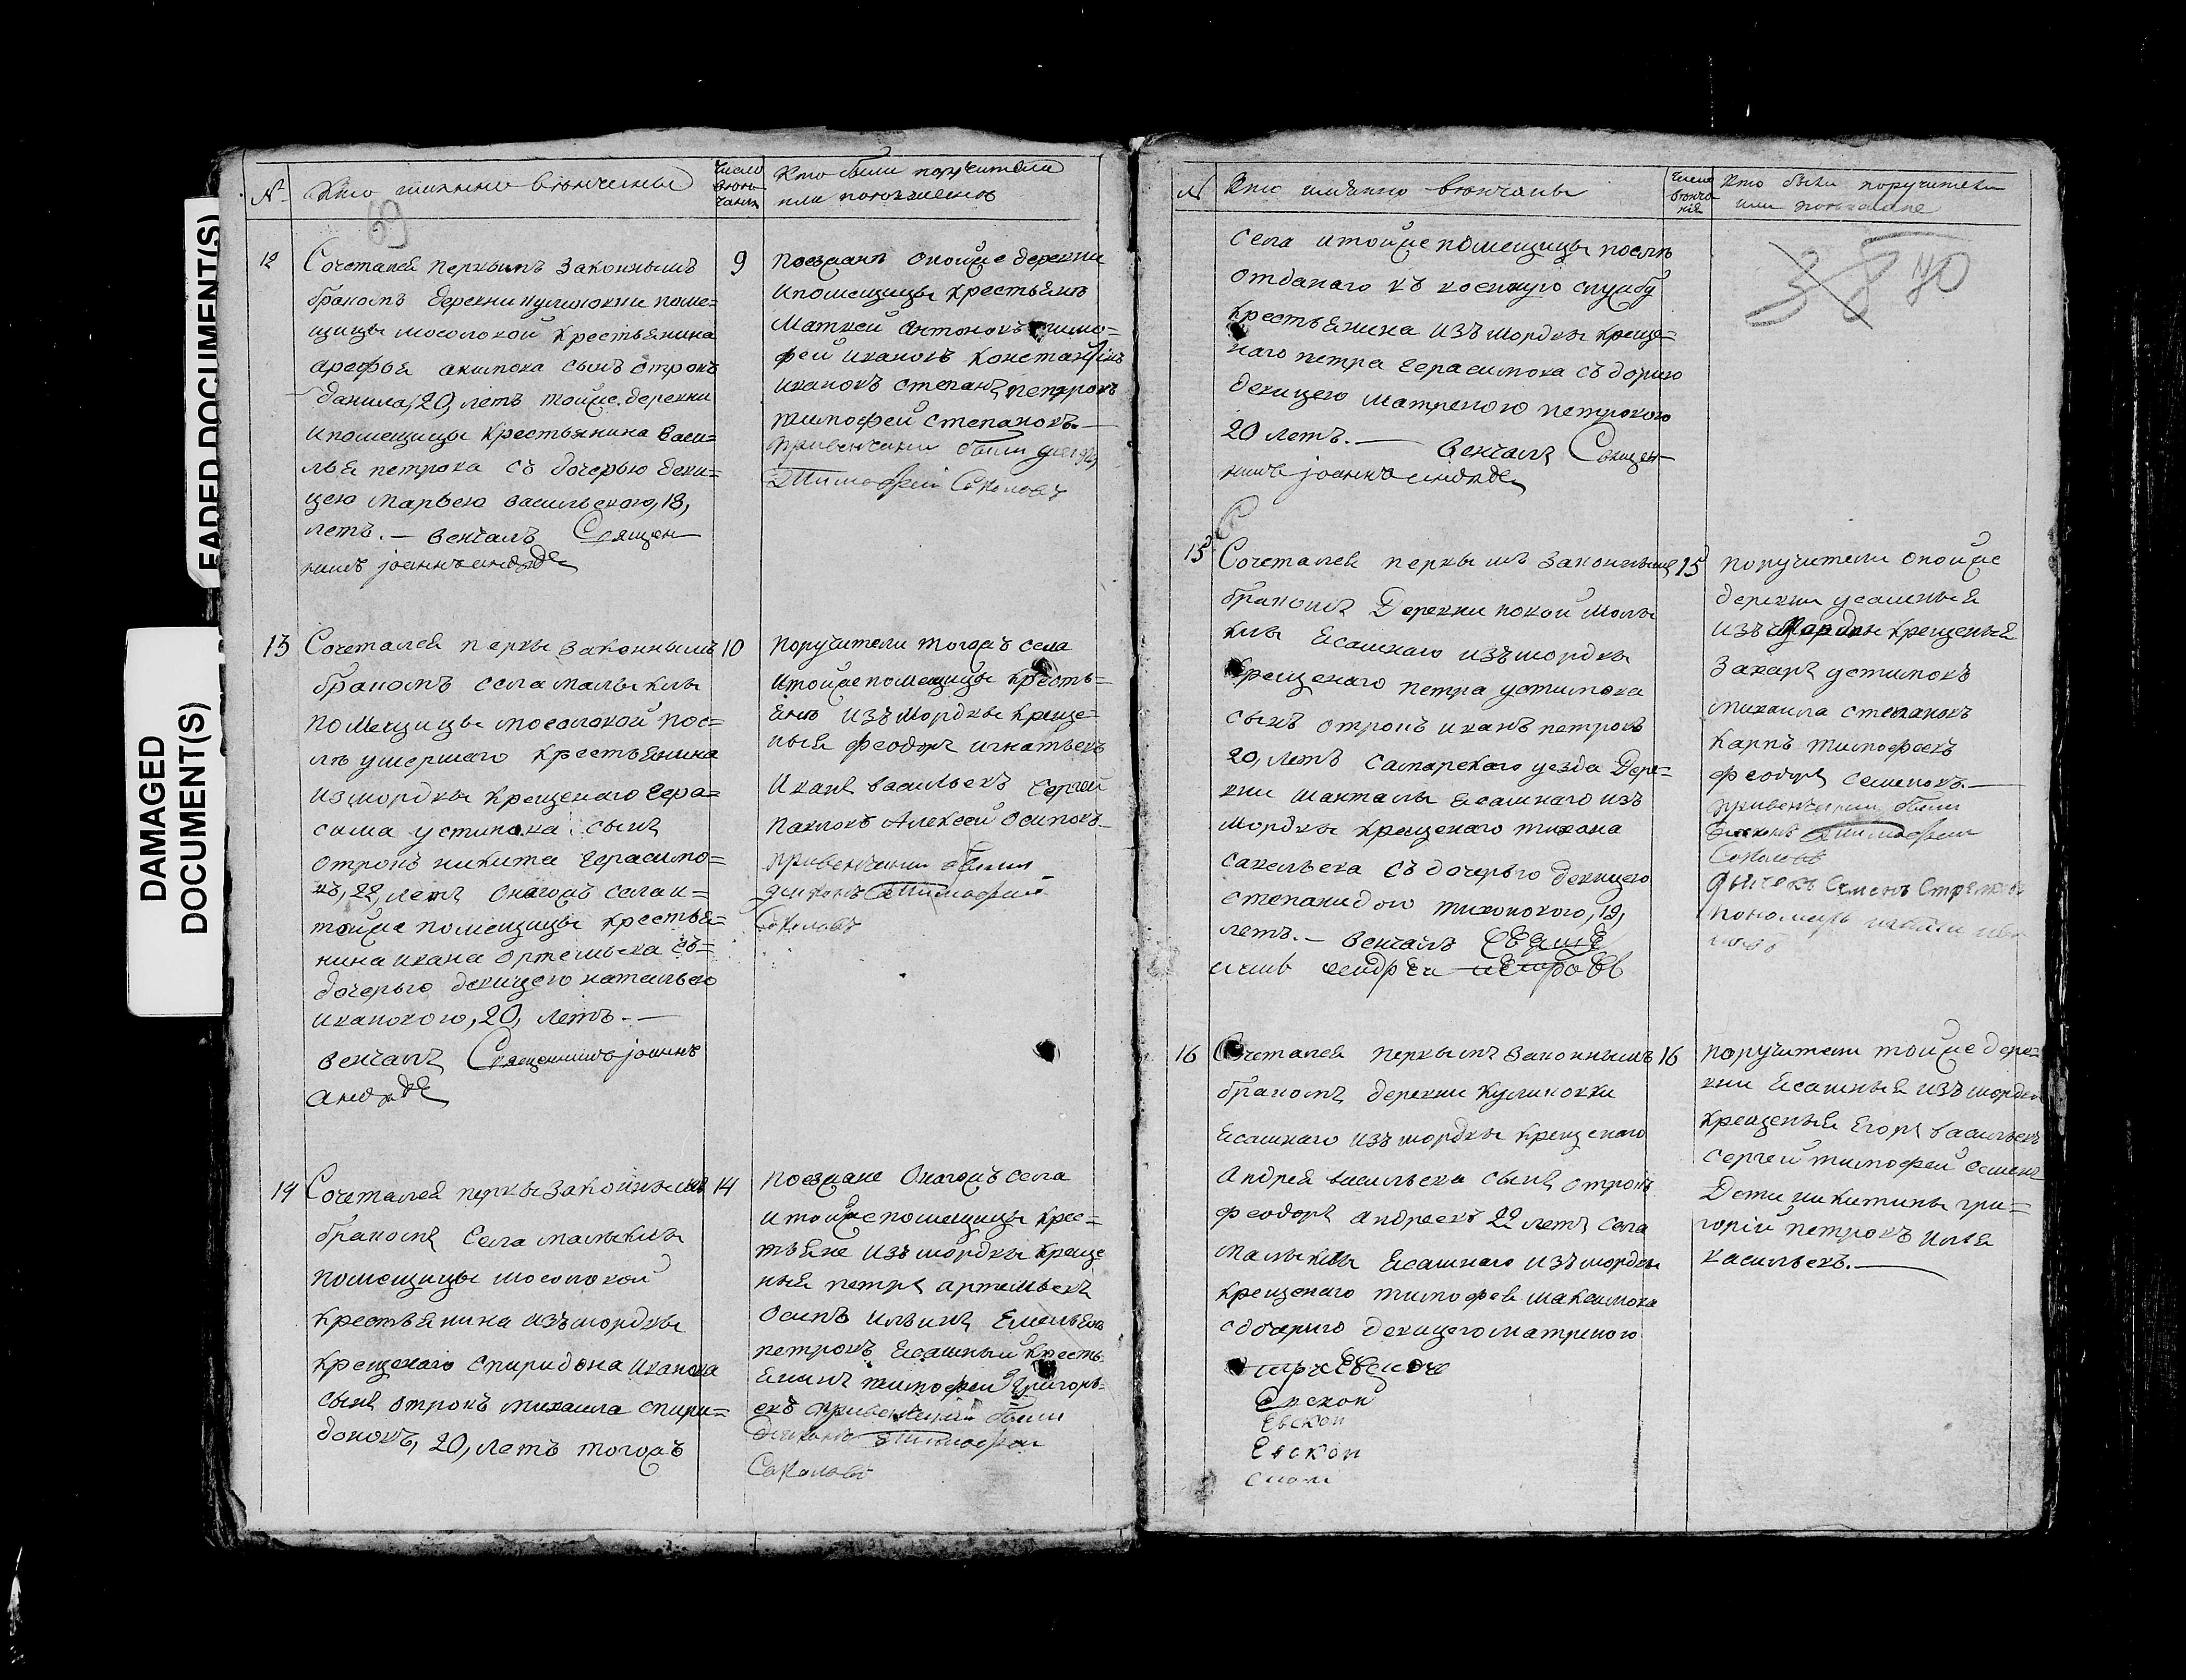 FADED DOCUMENT(S)
DAMAGED
DOCUMENT(S)
№
Кто имянно венчаны
число
венчания
Кто были поручители
или поезжане
69
12
Сочетался первымъ законнымъ
бракомъ деревни куликовки поме=
щицы мосоловой крестьянина
арефья акимова сынъ отрокъ
данила, 20, летъ тойже деревни
ипомещицы крестьянина васи=
лья петрова съ дочерью деви=
цею марьею васильевою, 18,
летъ. – венчалъ Священ
никъ јоаннъ
9
поезжанъ онойже деревни
ипомещицы крестьянъ
матвей антоновъ тимо=
фей ивановъ константинъ
ивановъ степанъ петровъ
тимофей степановъ. —
привенчании были
Тимофей Соколовъ
13
Сочетался первы законнымъ
бракомъ села малыклы
помещицы мосоловой пос=
лѣ умершаго крестьянина
измордвы крещенаго гера=
сима устинова сынъ
отрокъ никита герасимо=
въ, 22, летъ онагожъ села и=
тойже помещицы крестья=
нина ивана ортемьева съ=
дочерью девицею натальею
ивановою, 20, летъ. —
венчалъ Священникъ јоаннъ
10
поручители тогожъ села
итойже помещицы кресть=
янъ изъ мордвы креще=
ныя феодоръ игнатьевъ
иванъ васильевъ сергей
павловъ Алексей осиповъ
привенчании были
диаконъ Тимофей
Соколовъ
14
Сочетался первы законнымъ
бракомъ села малыклы
помещицы мосоловой
крестьянина изъ мордвы
крещенаго спиридона иванова
сынъ отрокъ михаила спири=
доновъ, 20, летъ тогожъ
14
поезжане онагожъ села
итойже помещицы крес=
тьяне изъ мордвы креще
ныя петръ артемьевъ
осипъ ильинъ Емельянъ
петровъ Ясашный кресть
янинъ тимофей григорь=
евъ привенчании были
диаконъ Тимофей
Соколовъ
№
Кто имянно венчаны
число
венча
ния
Кто были поручители
или поезжане
38 70
села итойже помещицы послѣ
отданаго въ военную службу
крестьянина изъ мордвы креще=
наго петра герасимова съ дочерю
девицею матреною петровою
20 летъ. — венчалъ Священ
никъ јоаннъ
15
Сочетался первымъ законнымъ
бракомъ Деревни новой малы
клы Ясашнаго изъ мордвы
крещенаго петра устинова
сынъ отрокъ иванъ петровъ
20, летъ самарскаго уезда Дере=
вни шанталы Ясашнаго изъ
мордвы крещенаго тихона
савельева съ дочерью девицею
степанидою тихоновою, 19,
летъ. – венчалъ
15
поручители онойже
деревни усашныя
изъ мордвы крещеныя
захаръ устиновъ
михаила степановъ
карпъ тимофеевъ
феодоръ семеновъ. —
привенчании были
диаконъ Тимофей
Соколовъ
дьячекъ Семенъ
пономарь
16
Сочетался первымъ законнымъ
бракомъ деревни куликовки
Ясашнаго изъ мордвы крещенаго
Андрея васильева сынъ отрокъ
феодоръ андреевъ 22 летъ села
малыклы Ясашнаго изъ мордвы
крещенаго тимофея максимова
сдочерью девицею матреною
Евскои
Евскои
Евскои
16
поручители тойже дере=
вни Ясашныя изъ мордвы
крещеныя Егоръ васильевъ
сергей тимофей семенъ
Дети никитины гри=
горій петровъ илья
васильевъ. —